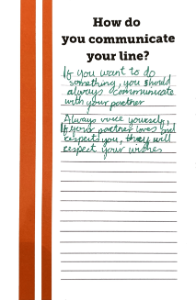 How do
you communicate
your line?
If you want to do
something, you should
always communicate
with your partner
Always voice yourself,
If your partner loves and
respects you, they will
respect your wishes